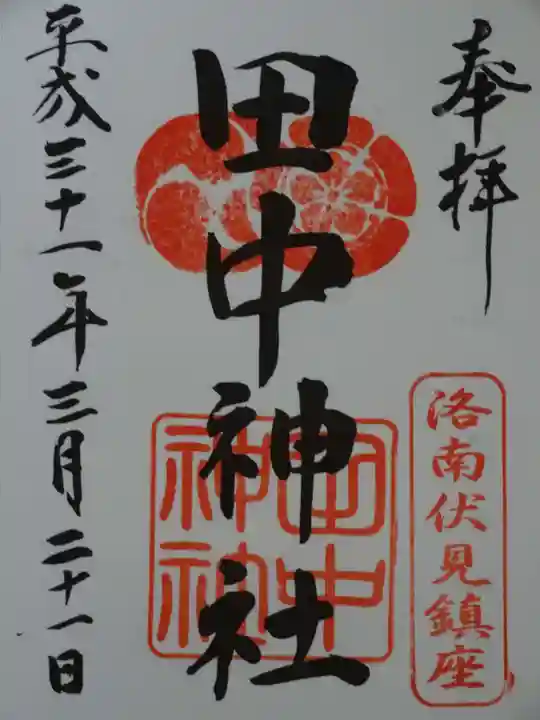 奉拝
洛南伏見鎮座
田中神社
田中
神社
平成三十一年三月二十一日